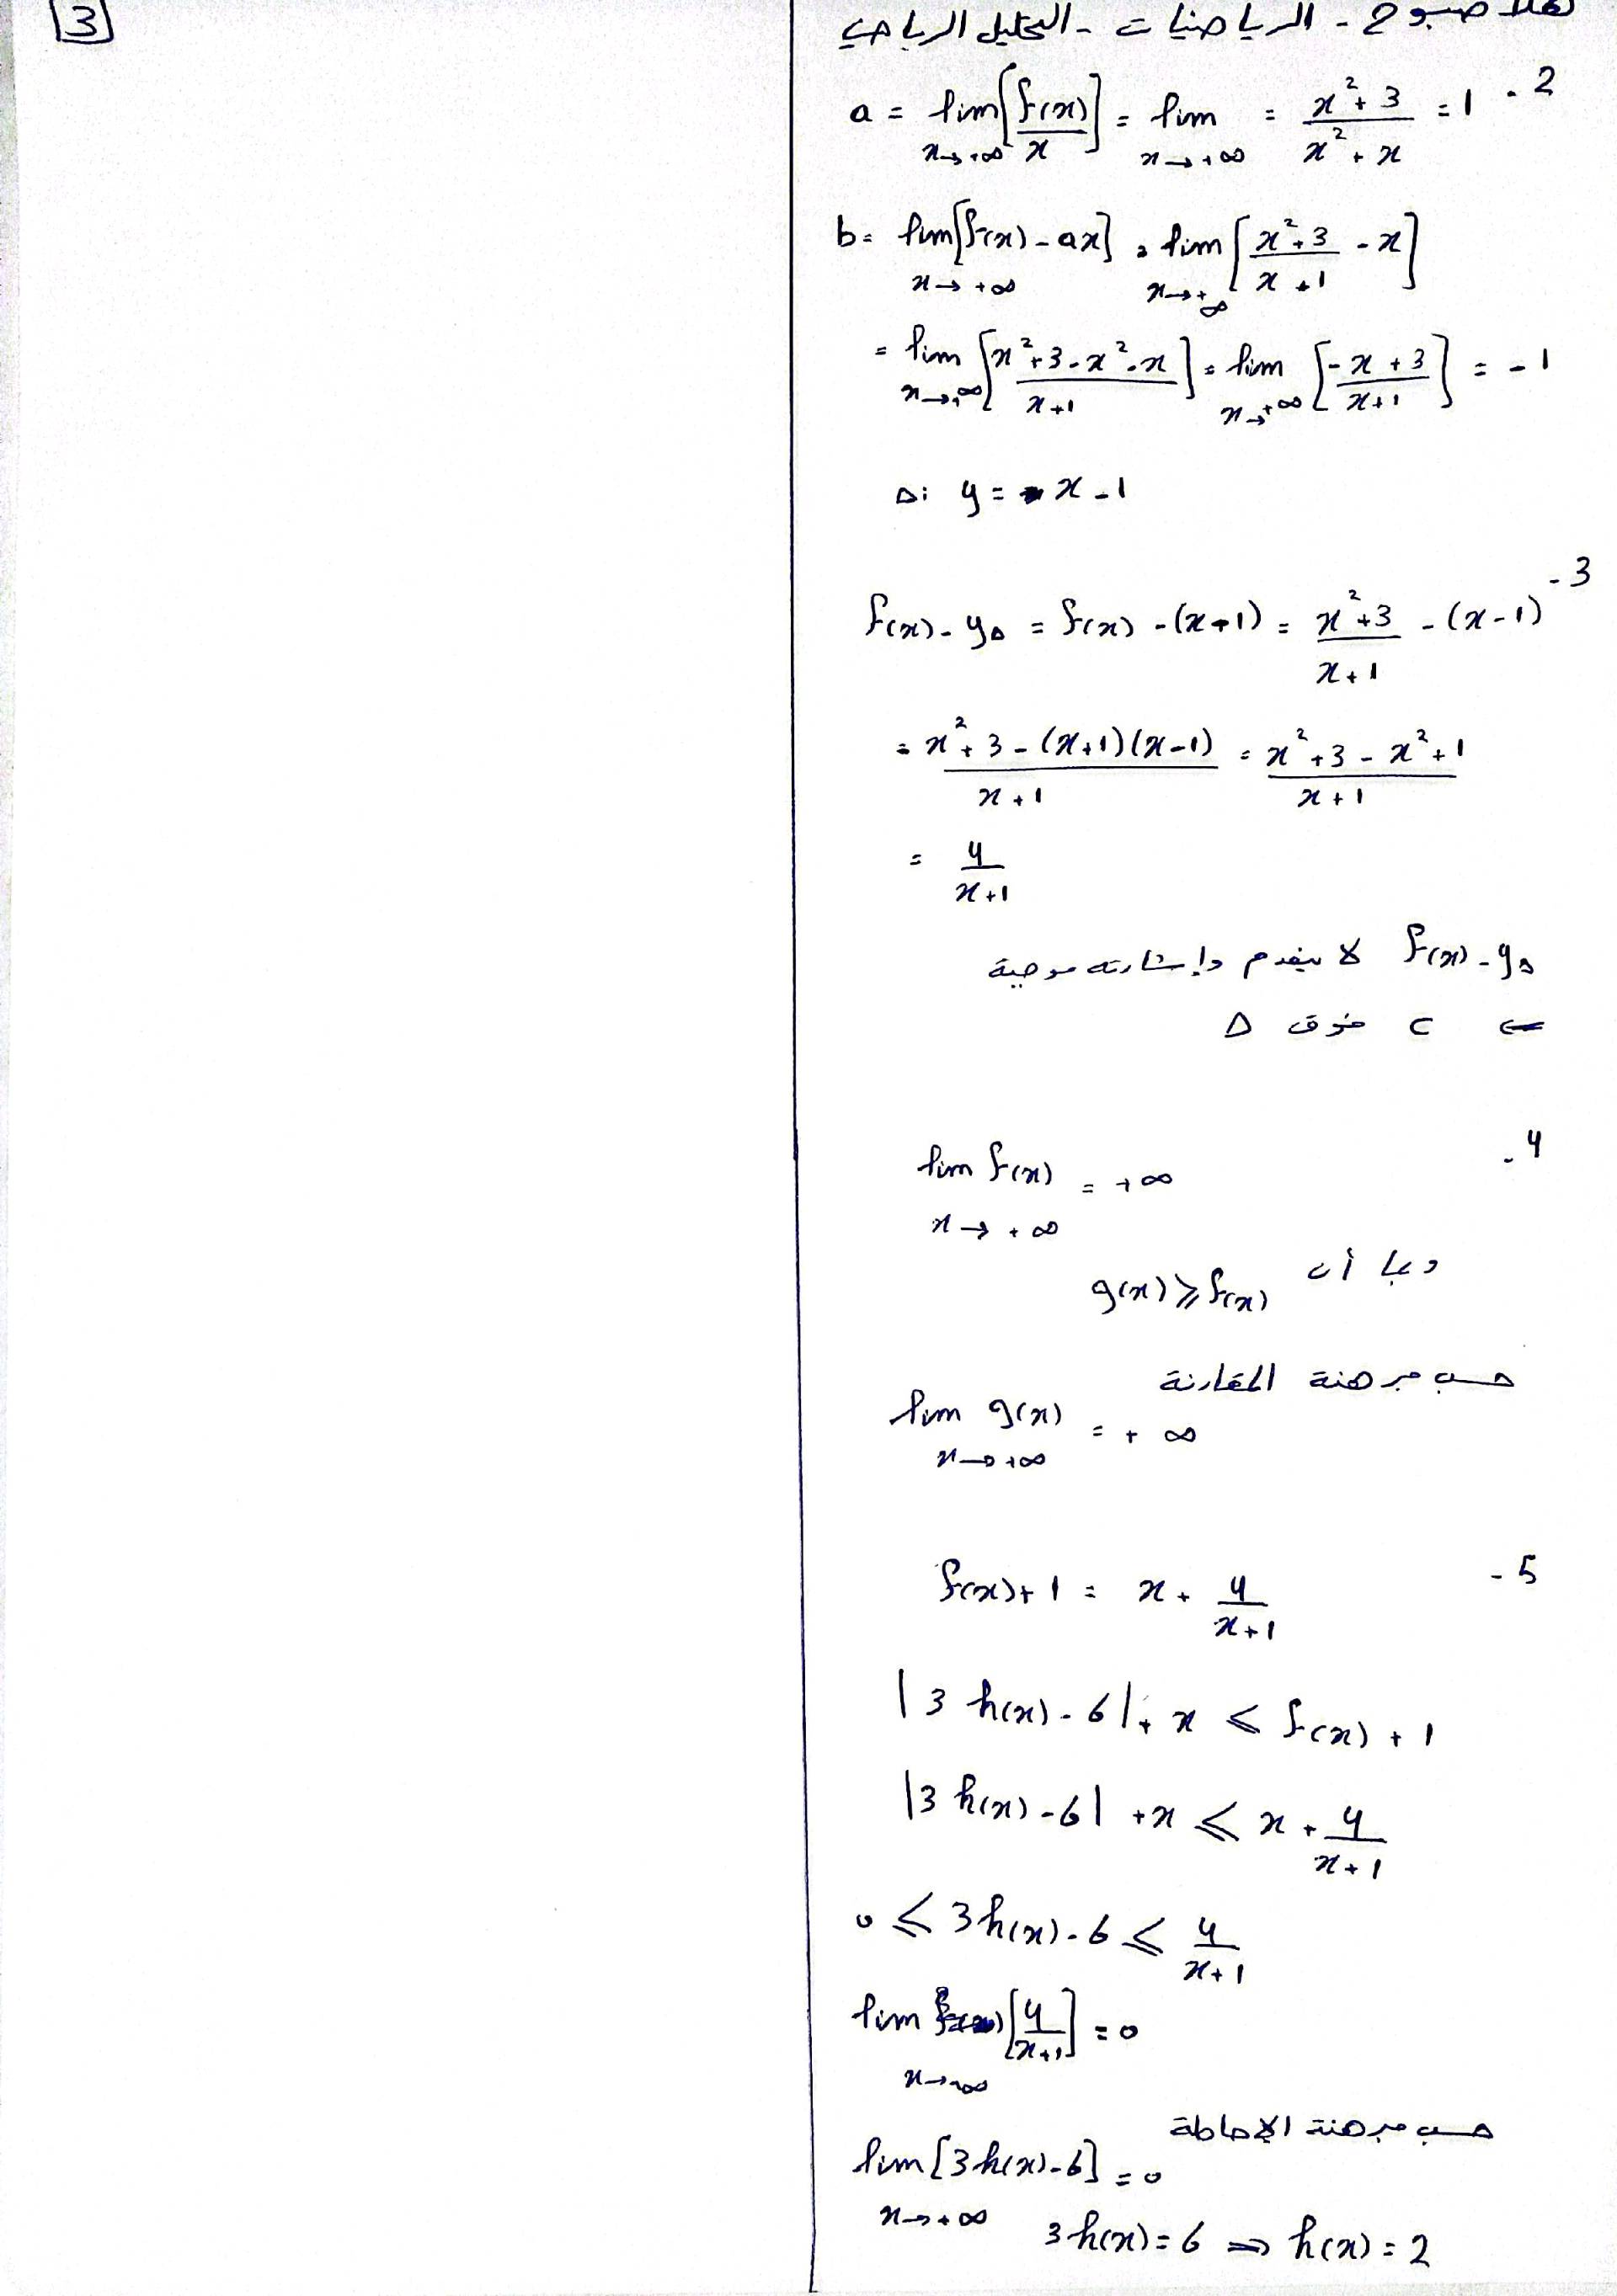 3
هلا صبوح - الرياضيات - التحليل الرياضي
2 - a = lim x→+∞ [f(x)/x] = lim x→+∞ = (x²+3)/(x²+x) = 1
b = lim x→+∞ [f(x) - ax] = lim x→+∞ [(x²+3)/(x+1) - x]
= lim x→+∞ [(x²+3-x²-x)/(x+1)] = lim x→+∞ [(-x+3)/(x+1)] = -1
Δ: y = x - 1
- 3
f(x) - yΔ = f(x) - (x+1) = (x²+3)/(x+1) - (x-1)
= (x²+3-(x+1)(x-1))/(x+1) = (x²+3-x²+1)/(x+1)
= 4/(x+1)
f(x) - yΔ لا ينعدم وإشارته موجبة
⇐ C فوق Δ
- 4
lim x→+∞ f(x) = +∞
وبما أن g(x) ⩾ f(x)
حسب مبرهنة المقارنة
lim x→+∞ g(x) = +∞
- 5
f(x) + 1 = x + 4/(x+1)
|3h(x) - 6| + x ⩽ f(x) + 1
|3h(x) - 6| + x ⩽ x + 4/(x+1)
0 ⩽ 3h(x) - 6 ⩽ 4/(x+1)
lim x→+∞ [4/(x+1)] = 0
حسب مبرهنة الإحاطة
lim x→+∞ [3h(x) - 6] = 0
3h(x) = 6 ⇒ h(x) = 2